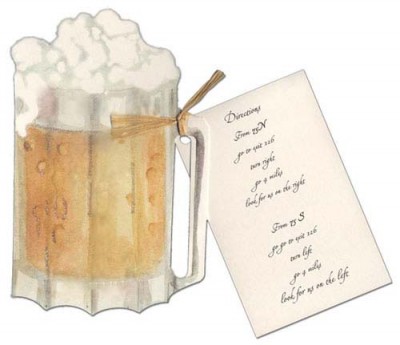 Directions
From 75 N
go to exit 226
turn right
go 9 miles
look for us on the right
From 75 S
go go to exit 226
turn left
go 9 miles
look for us on the left